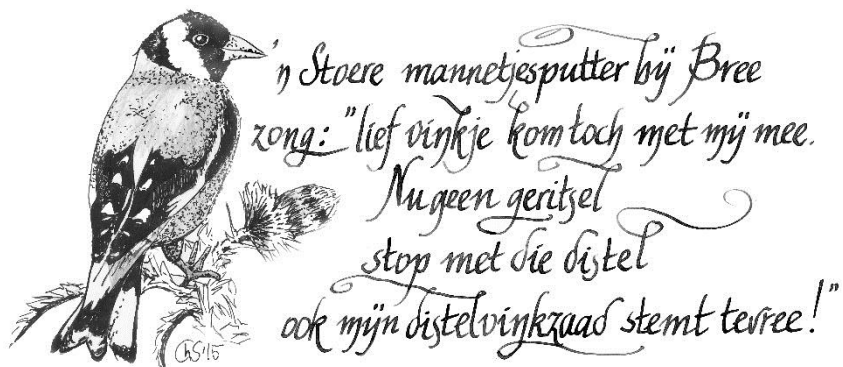 'n Stoere mannetjesputter bij Bree
zong: "lief vinkje kom toch met mij mee.
Nu geen geritsel
stop met die distel
ook mijn distelvinkzaad stemt tevree!"
ChS '15